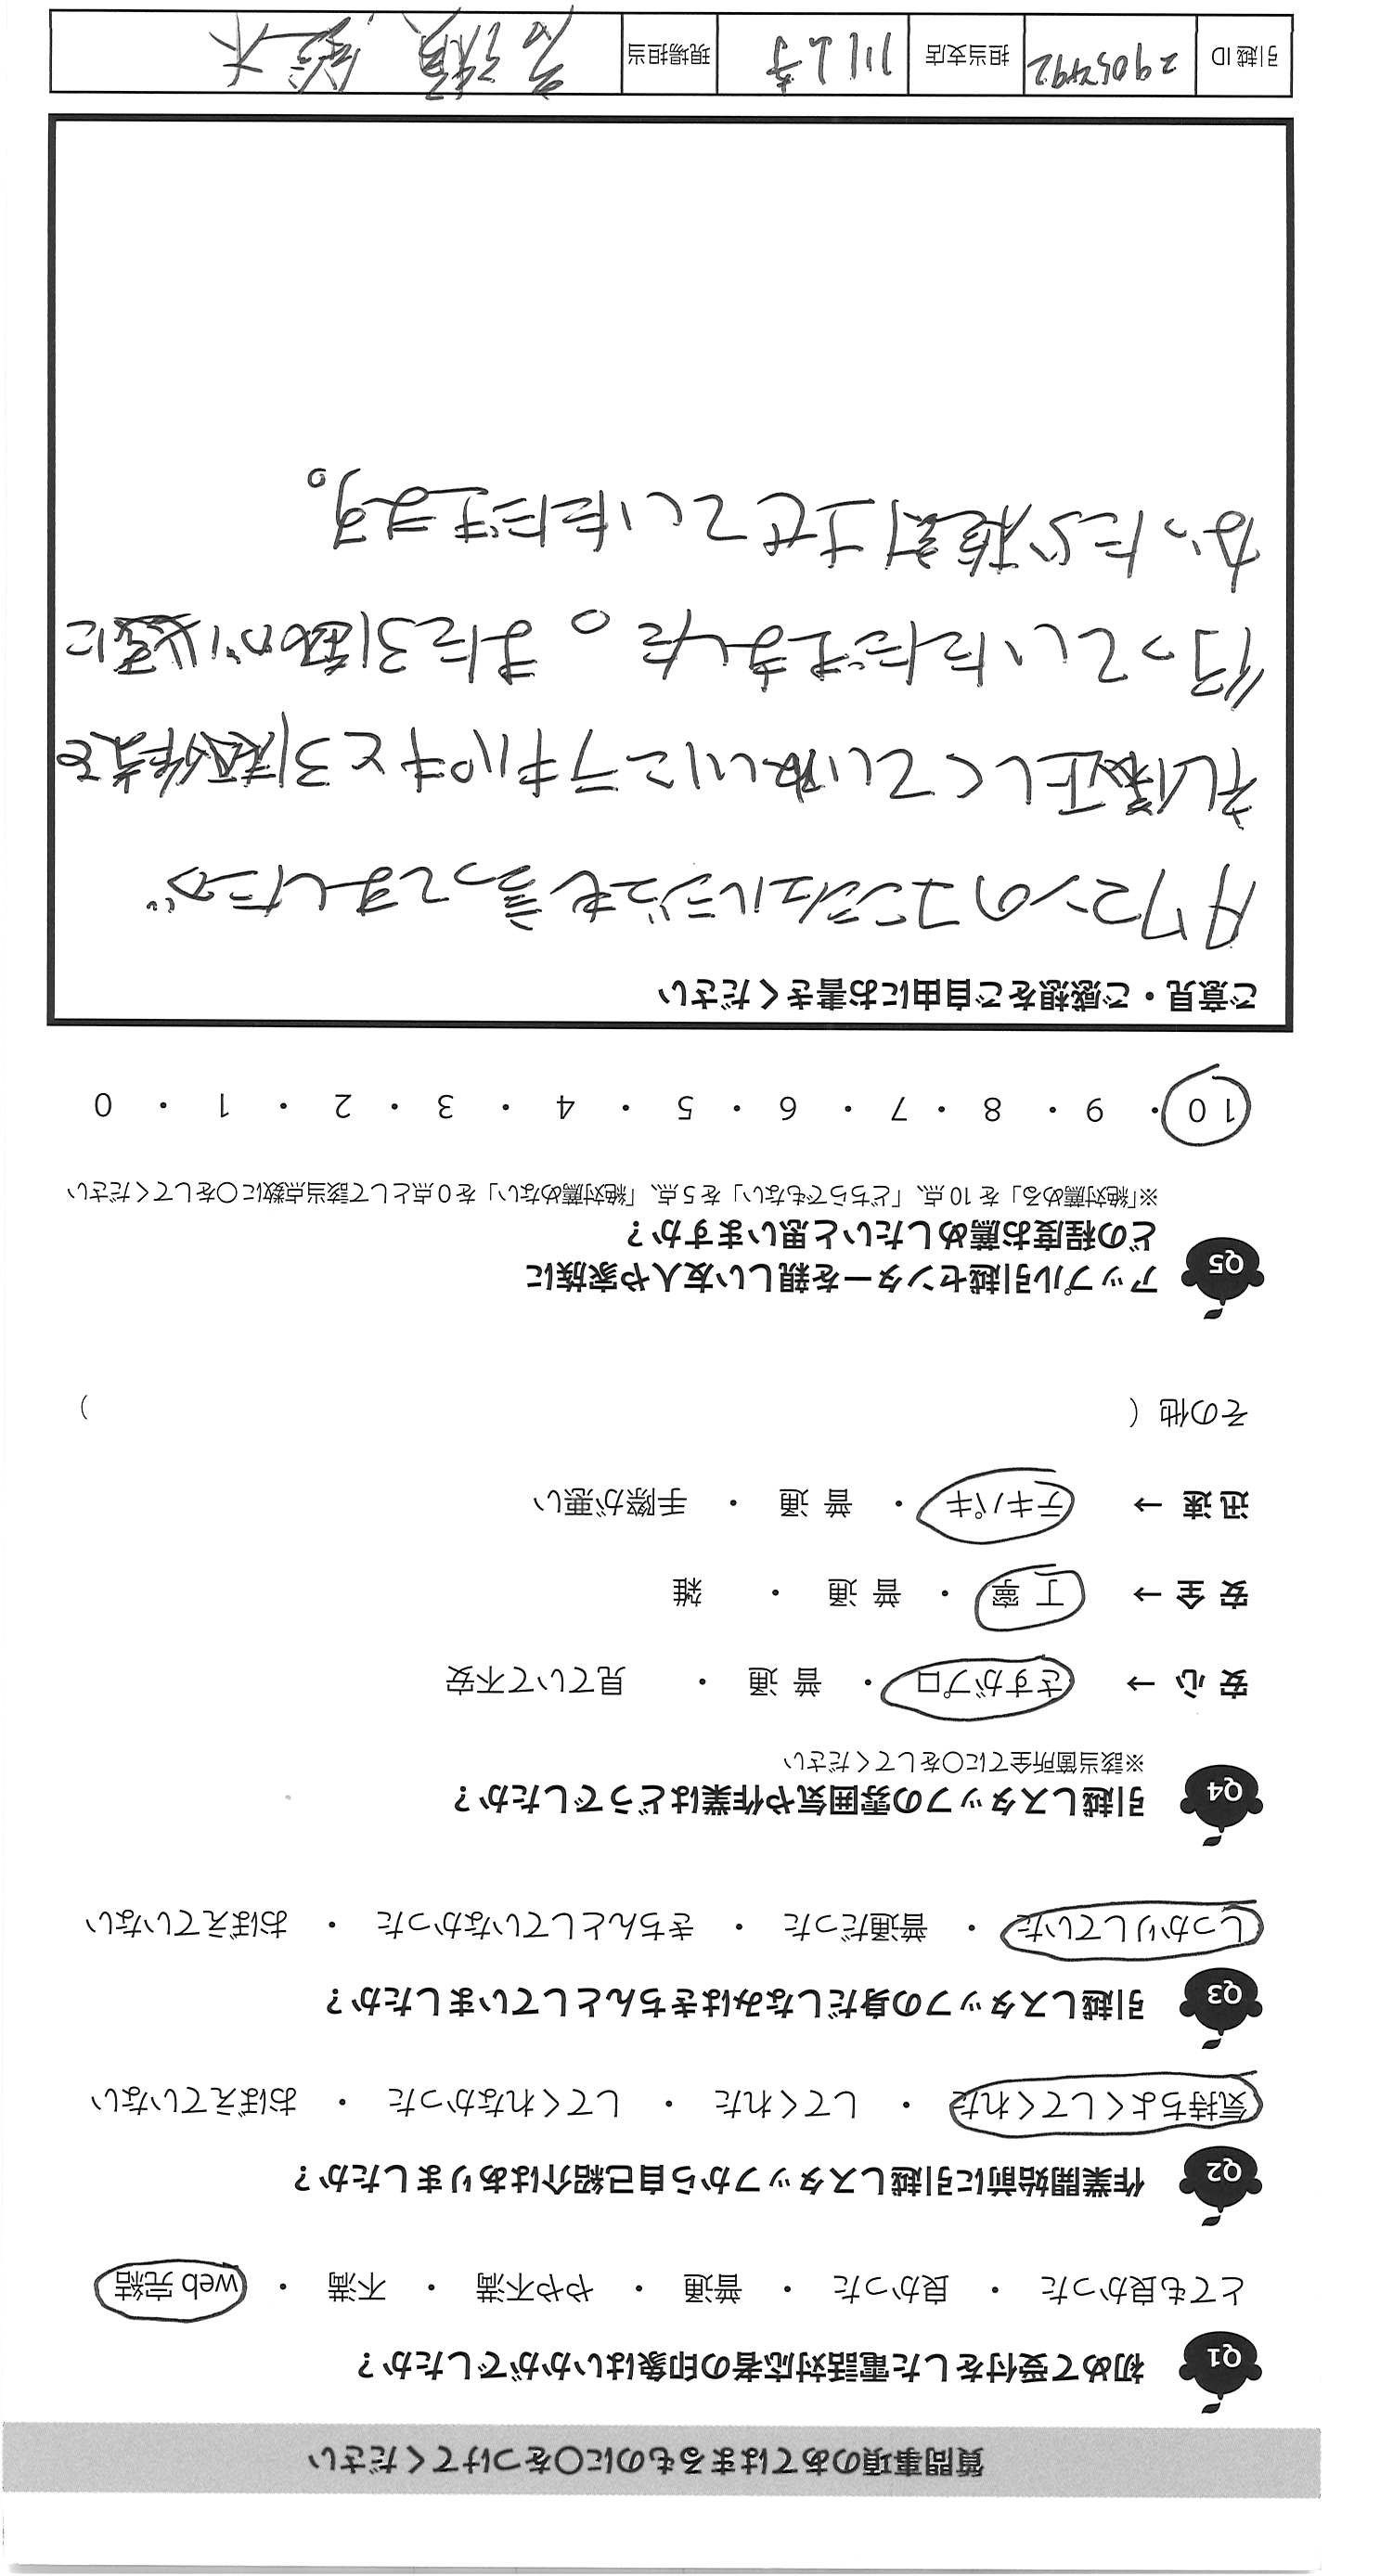 質問事項のあてはまるものに○をつけてください
Q1 初めて受付をした電話対応者の印象はいかがでしたか？
とても良かった ・ 良かった ・ 普通 ・ やや不満 ・ 不満 ・ web 完結
Q2 作業開始前に引越しスタッフから自己紹介はありましたか？
気持ちよくしてくれた ・ してくれた ・ してくれなかった ・ おぼえていない
Q3 引越しスタッフの身だしなみはきちんとしていましたか？
しっかりしていた ・ 普通だった ・ きちんとしていなかった ・ おぼえていない
Q4 引越しスタッフの雰囲気や作業はどうでしたか？
※該当箇所全てに○をしてください
安 心 → さすがプロ ・ 普 通 ・ 見ていて不安
安 全 → 丁 寧 ・ 普 通 ・ 雑
迅 速 → テキパキ ・ 普 通 ・ 手際が悪い
その他（ ）
Q5 アップル引越センターを親しい友人や家族に
どの程度お薦めしたいと思いますか？
※「絶対薦める」を 10 点、「どちらでもない」を 5 点、「絶対薦めない」を 0 点として該当点数に○をしてください
10 ・ 9 ・ 8 ・ 7 ・ 6 ・ 5 ・ 4 ・ 3 ・ 2 ・ 1 ・ 0
ご意見・ご感想をご自由にお書きください
タワマンのコンシェルジュも言ってましたが
礼儀正しくていねいにテキパキと引越作業を
行っていただきました。また引越が必要に
なったら検討させていただきます。
引越 ID 担当支店 川崎 現場担当 鈴木